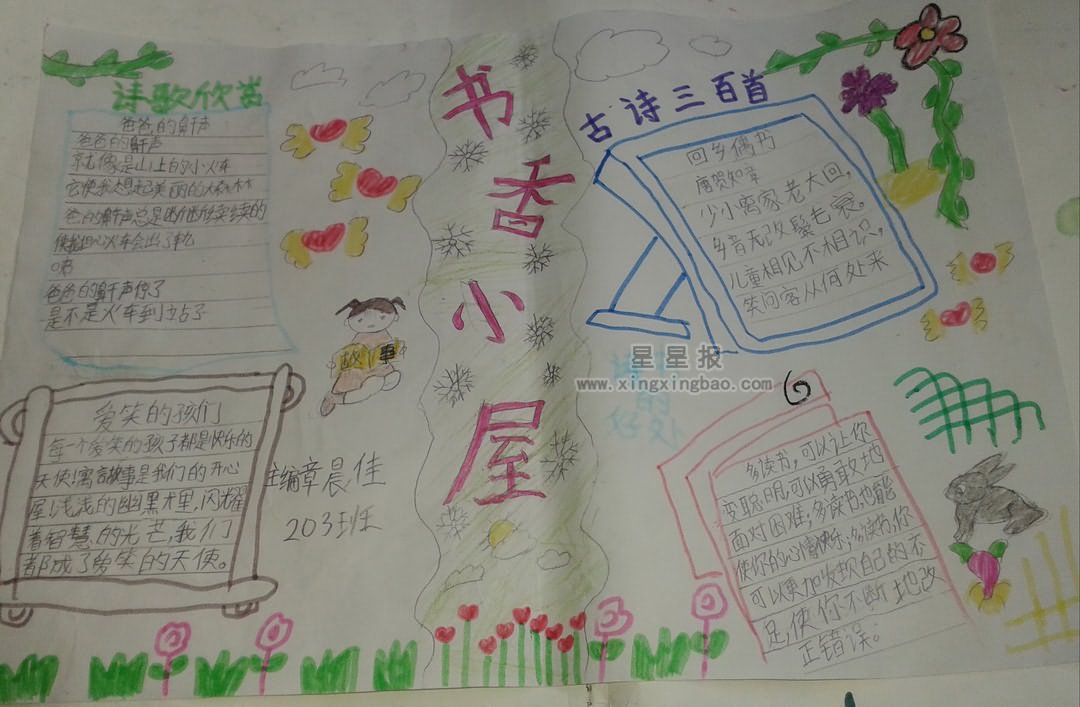 诗歌欣赏
爸爸的鼾声
爸爸的鼾声
就像是山上的小火车
它使我想起美丽的森林
爸爸的鼾声总是断断续续的
使我担心火车会出了轨
咦
爸爸的鼾声停了
是不是火车到站了
爱笑的孩们
每一个爱笑的孩子都是快乐的
天使!寓言故事是我们的开心
屋,浅浅的幽黑犬里,闪耀
着智慧的光芒,我们
都成了爱笑的天使。
故事
主编章晨佳
203班
书香小屋
古诗三百首
回乡偶书
唐贺知章
少小离家老大回,
乡音无改鬓毛衰。
儿童相见不相识,
笑问客从何处来
星星报
www.xingxingbao.com
的
好处
多读书,可以让你
变聪明,可以勇敢地
面对困难;多读书,也能
使你的心情快乐;多读书,你
可以更加发现自己的不
足,使你不断地改
正错误。